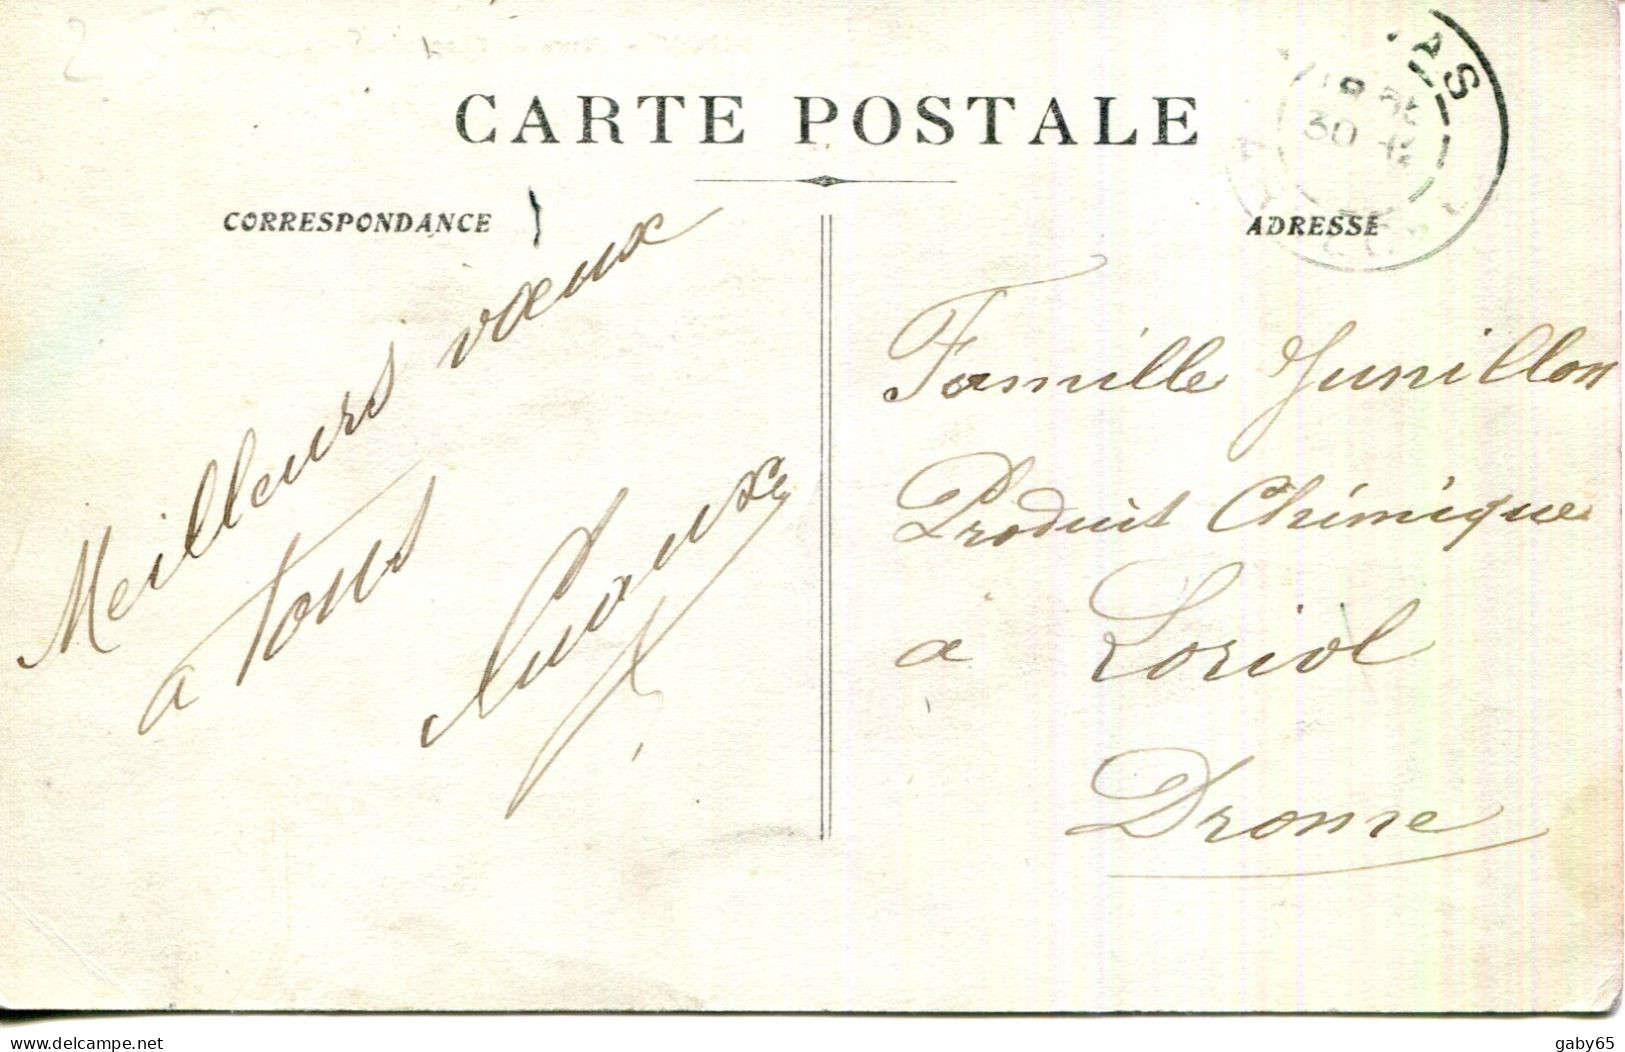 CARTE POSTALE
CORRESPONDANCE
ADRESSE
Meilleurs vœux
a tous
Famille Junillon
Produit Chimique
a Loriol
Drome
delcampe.net
gaby65